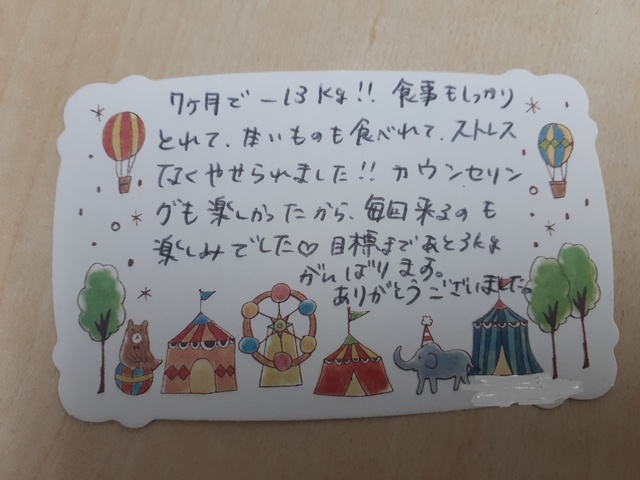 7ヶ月で－13kg!! 食事もしっかり
とれて、甘いものも食べれて、ストレス
なくやせられました!! カウンセリン
グも楽しかったから、毎回来るのも
楽しみでした♡ 目標まであと3kg
がんばります。
ありがとうございました。